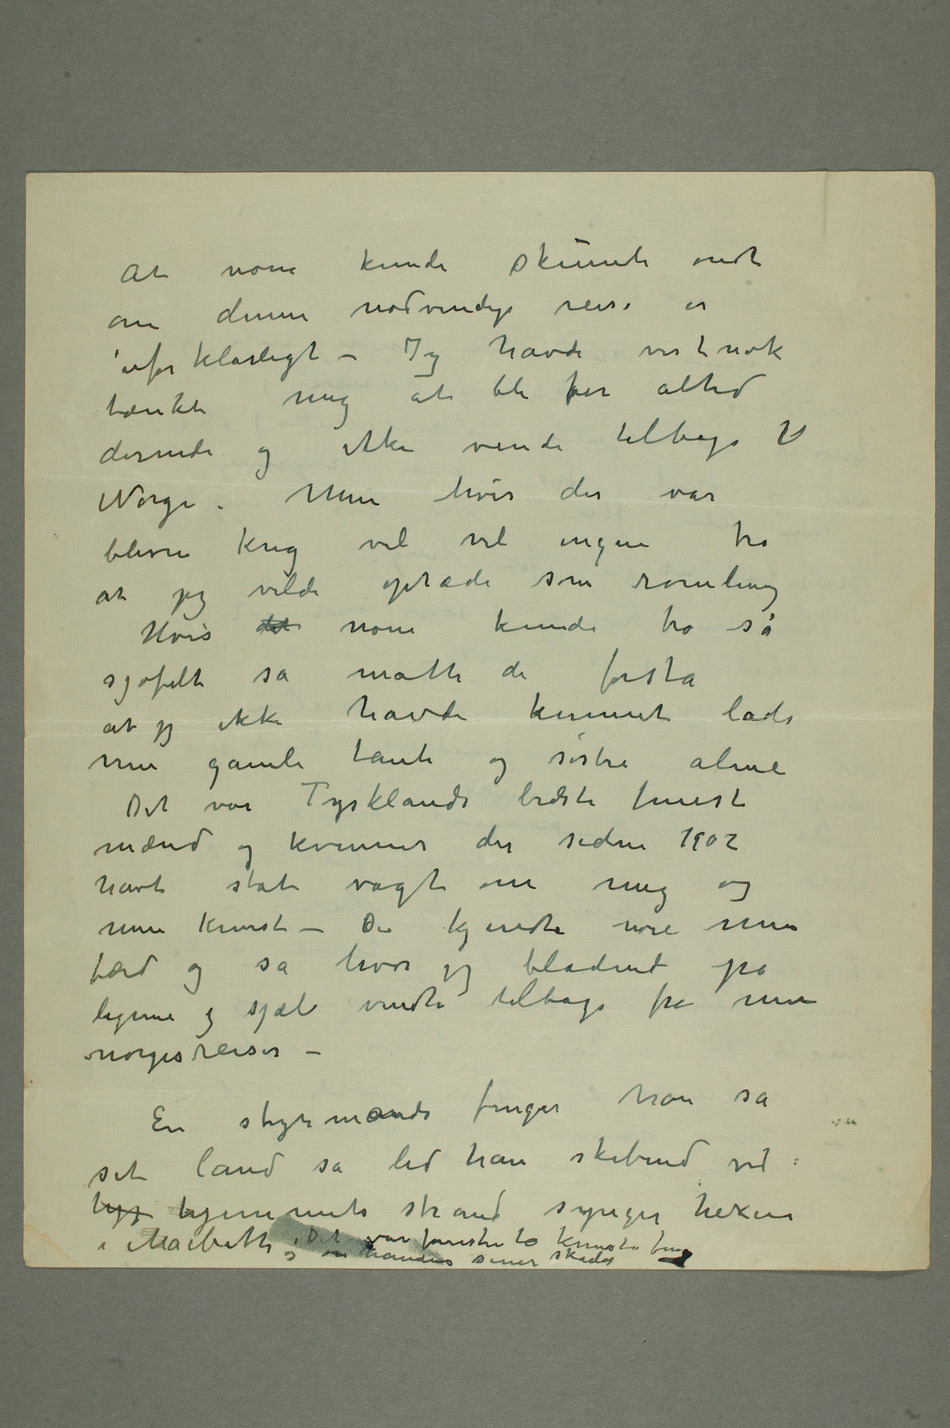 At noen kunde skumle ondt
om denne nødvendige reise er
uforklarligt – Jeg havde vistnok
tænkt mig at bli for altid
dernede og ikke vende tilbage til
Norge. Men hvis der var
bleven krig vel vil ingen tro
at jeg vilde optræde som rømling
Hvis det noen kunde tro så
sjofelt så måtte de forstå
at jeg ikke havde kunnet lade
min gamle tante og søstre alene
Det var Tysklands bedste finest
mænd og kvinner der siden 1902
havt ståt vagt om mig og
min kunst – De kjendte nøie min
færd og så hvor jeg blødend på
legeme og sjæl vendte tilbage fra min
norgesreiser –
En styrmands finger har så
set land så led han skibrud ved
hje hjemmets strand synger hexene
i Macbeth Det var fin to knuste fing
og håndens sener skadet